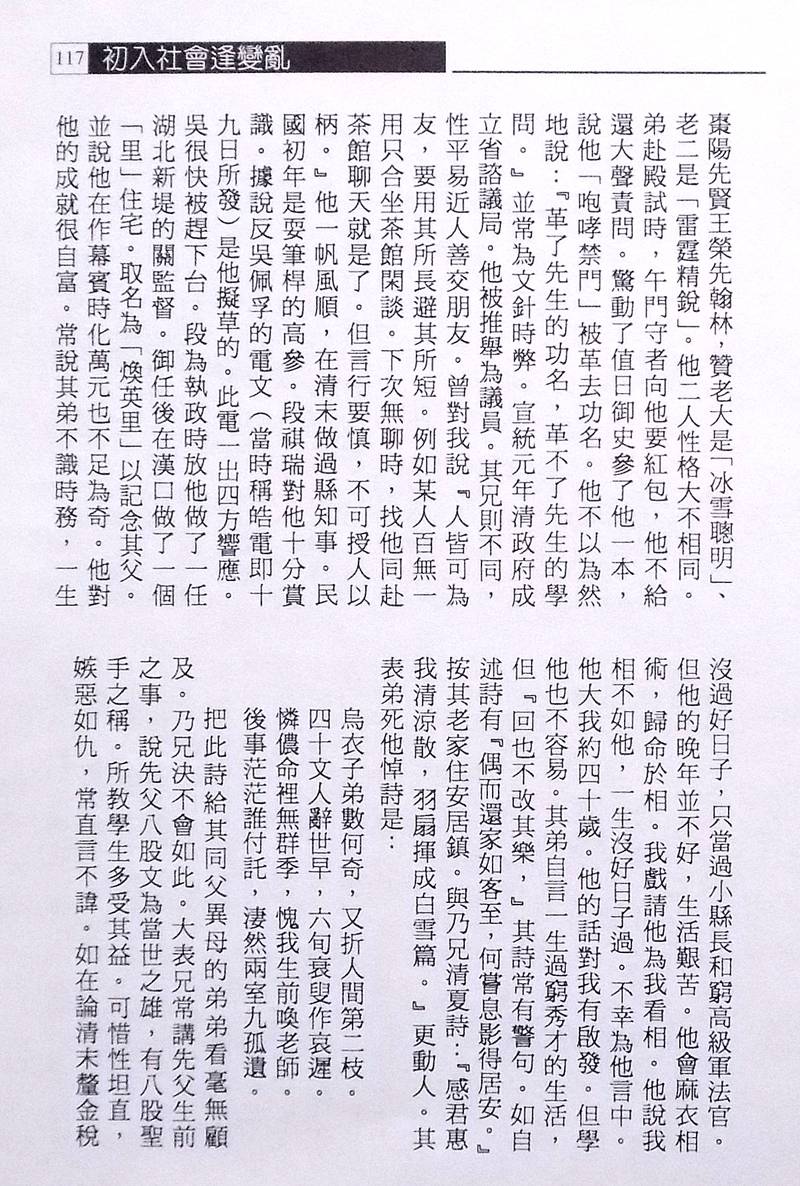 117 初入社會逢變亂
棗陽先賢王榮先翰林，贊老大是「冰雪聰明」、
老二是「雷霆精銳」。他二人性格大不相同。
弟赴殿試時，午門守者向他要紅包，他不給
還大聲責問。驚動了值日御史參了他一本，
說他「咆哮禁門」被革去功名。他不以為然
地說：『革了先生的功名，革不了先生的學
問。』並常為文針時弊。宣統元年清政府成
立省諮議局。他被推舉為議員。其兄則不同，
性平易近人善交朋友。曾對我說『人皆可為
友，要用其所長避其所短。例如某人百無一
用只合坐茶館閑談。下次無聊時，找他同赴
茶館聊天就是了。但言行要慎，不可授人以
柄。』他一帆風順，在清末做過縣知事。民
國初年是耍筆桿的高參。段祺瑞對他十分賞
識。據說反吳佩孚的電文（當時稱皓電即十
九日所發）是他擬草的。此電一出四方響應。
吳很快被趕下台。段為執政時放他做了一任
湖北新堤的關監督。御任後在漢口做了一個
「里」住宅。取名為「煥英里」以記念其父。
並說他在作幕賓時化萬元也不足為奇。他對
他的成就很自富。常說其弟不識時務，一生
沒過好日子，只當過小縣長和窮高級軍法官。
但他的晚年並不好，生活艱苦。他會麻衣相
術，歸命於相。我戲請他為我看相。他說我
相不如他，一生沒好日子過。不幸為他言中。
他大我約四十歲。他的話對我有啟發。但學
他也不容易。其弟自言一生過窮秀才的生活，
但『回也不改其樂，』其詩常有警句。如自
述詩有『偶而還家如客至，何嘗息影得居安。』
按其老家住安居鎮。與乃兄清夏詩：『感君惠
我清涼散，羽扇揮成白雪篇。』更動人。其
表弟死他悼詩是：
烏衣子弟數何奇，又折人間第二枝。
四十文人辭世早，六旬衰叟作哀遲。
憐儂命裡無群季，愧我生前喚老師。
後事茫茫誰付託，淒然兩室九孤遺。
把此詩給其同父異母的弟弟看毫無顧
及。乃兄決不會如此。大表兄常講先父生前
之事，說先父八股文為當世之雄，有八股聖
手之稱。所教學生多受其益。可惜性坦直，
嫉惡如仇，常直言不諱。如在論清末釐金稅